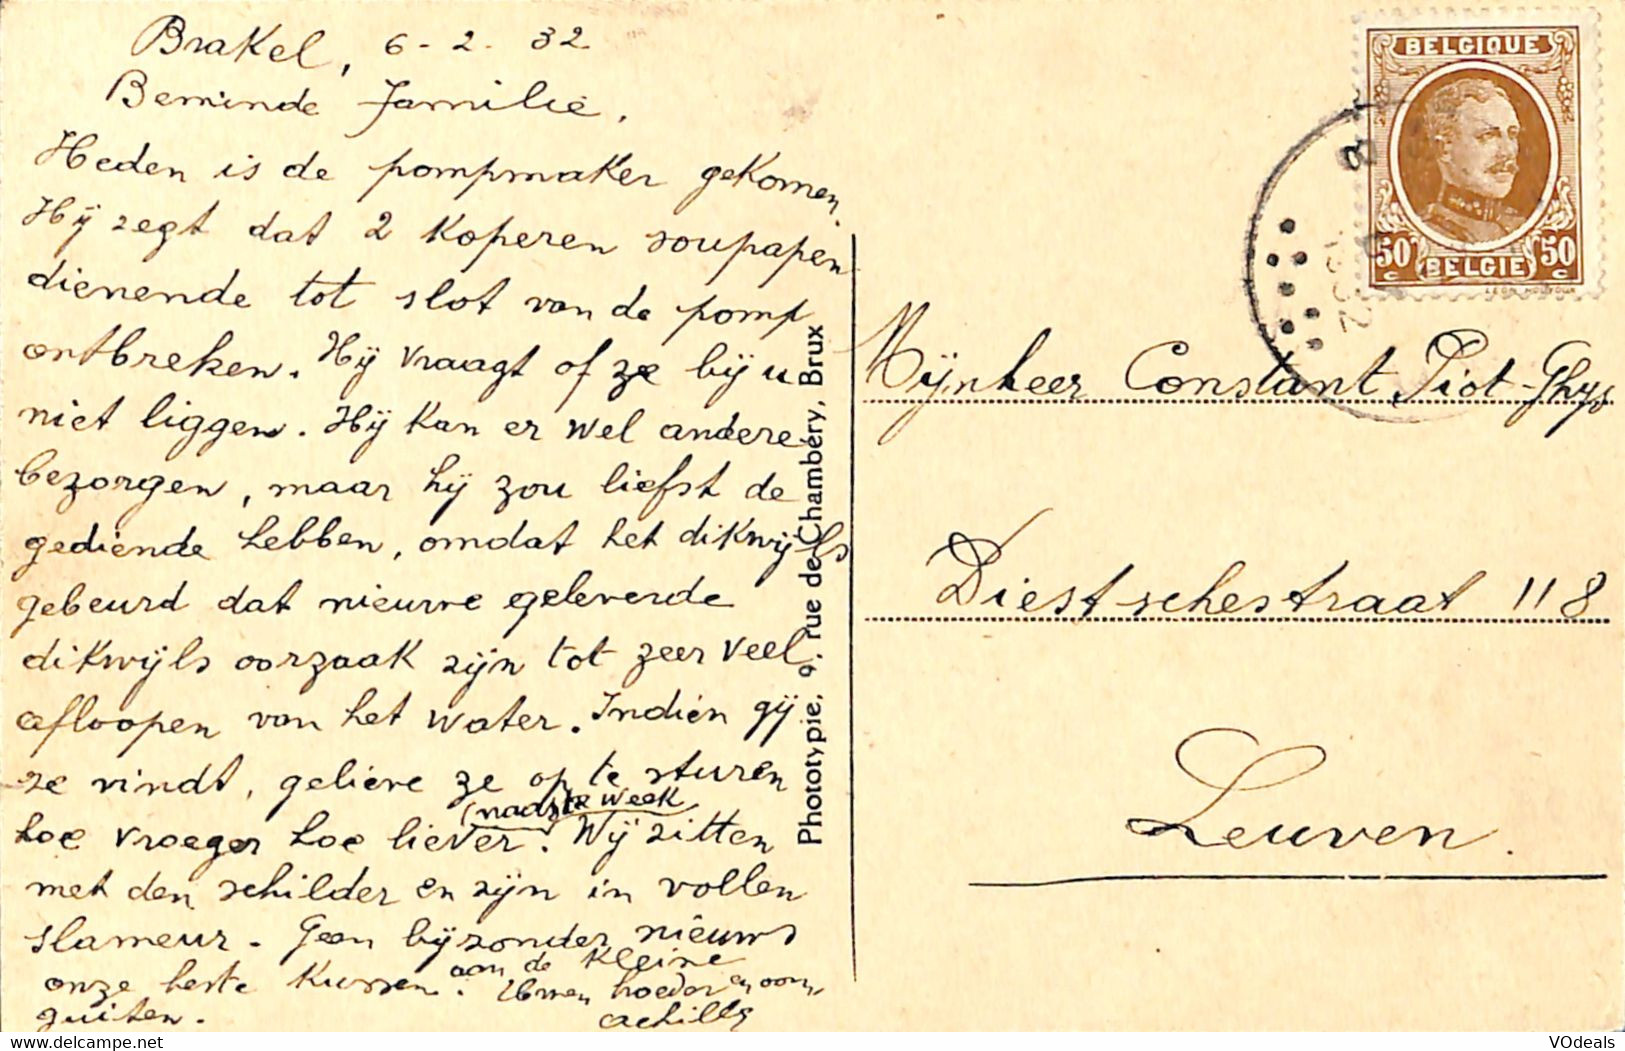 Brakel, 6-2-32
Beminde Familie,
Heden is de pompmaker gekomen.
Hij zegt dat 2 koperen soupapen
dienende tot slot van de pomp
ontbreken. Hij vraagt of ze bij u
niet liggen. Hij kan er wel andere
bezorgen, maar hij zou liefst de
gediende hebben, omdat het dikwijls
gebeurd dat nieuwe geleverde
dikwijls oorzaak zijn tot zeer veel
afloopen van het water. Indien gij
ze vindt, gelieve ze op te sturen
(naaste week)
hoe vroeger hoe liever. Wij zitten
met den schilder en zijn in vollen
slameur. Geen bijzonder nieuws
onze beste kussen aan de kleine
guiten. Uwen broeder en oom,
Achille
Phototypie, 9, rue de Chambéry, Brux
BELGIQUE
50 c 50 c
BELGIE
1932
Mijnheer Constant Piot-Ghys
Diestschestraat 118
Leuven.
VOdeals